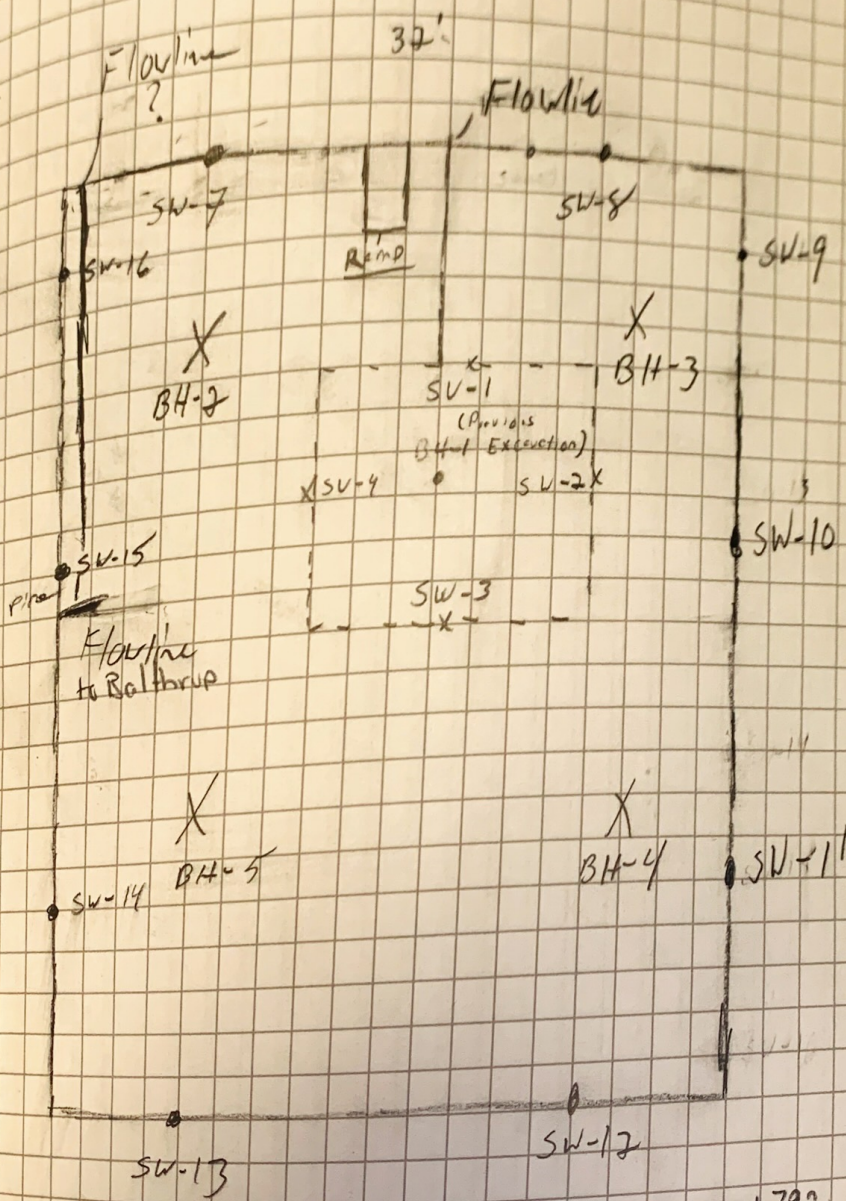 32'
Flowline
?
Flowlin
SW-7
SW-8
Ramp
SW-9
SW-16
BH-2
BH-3
SW-1
(Previous
BH-1 Excavation)
SW-4
SW-2
SW-10
SW-15
SW-3
Flowline
to Balthrup
BH-5
BH-4
SW-11
SW-14
SW-12
SW-13